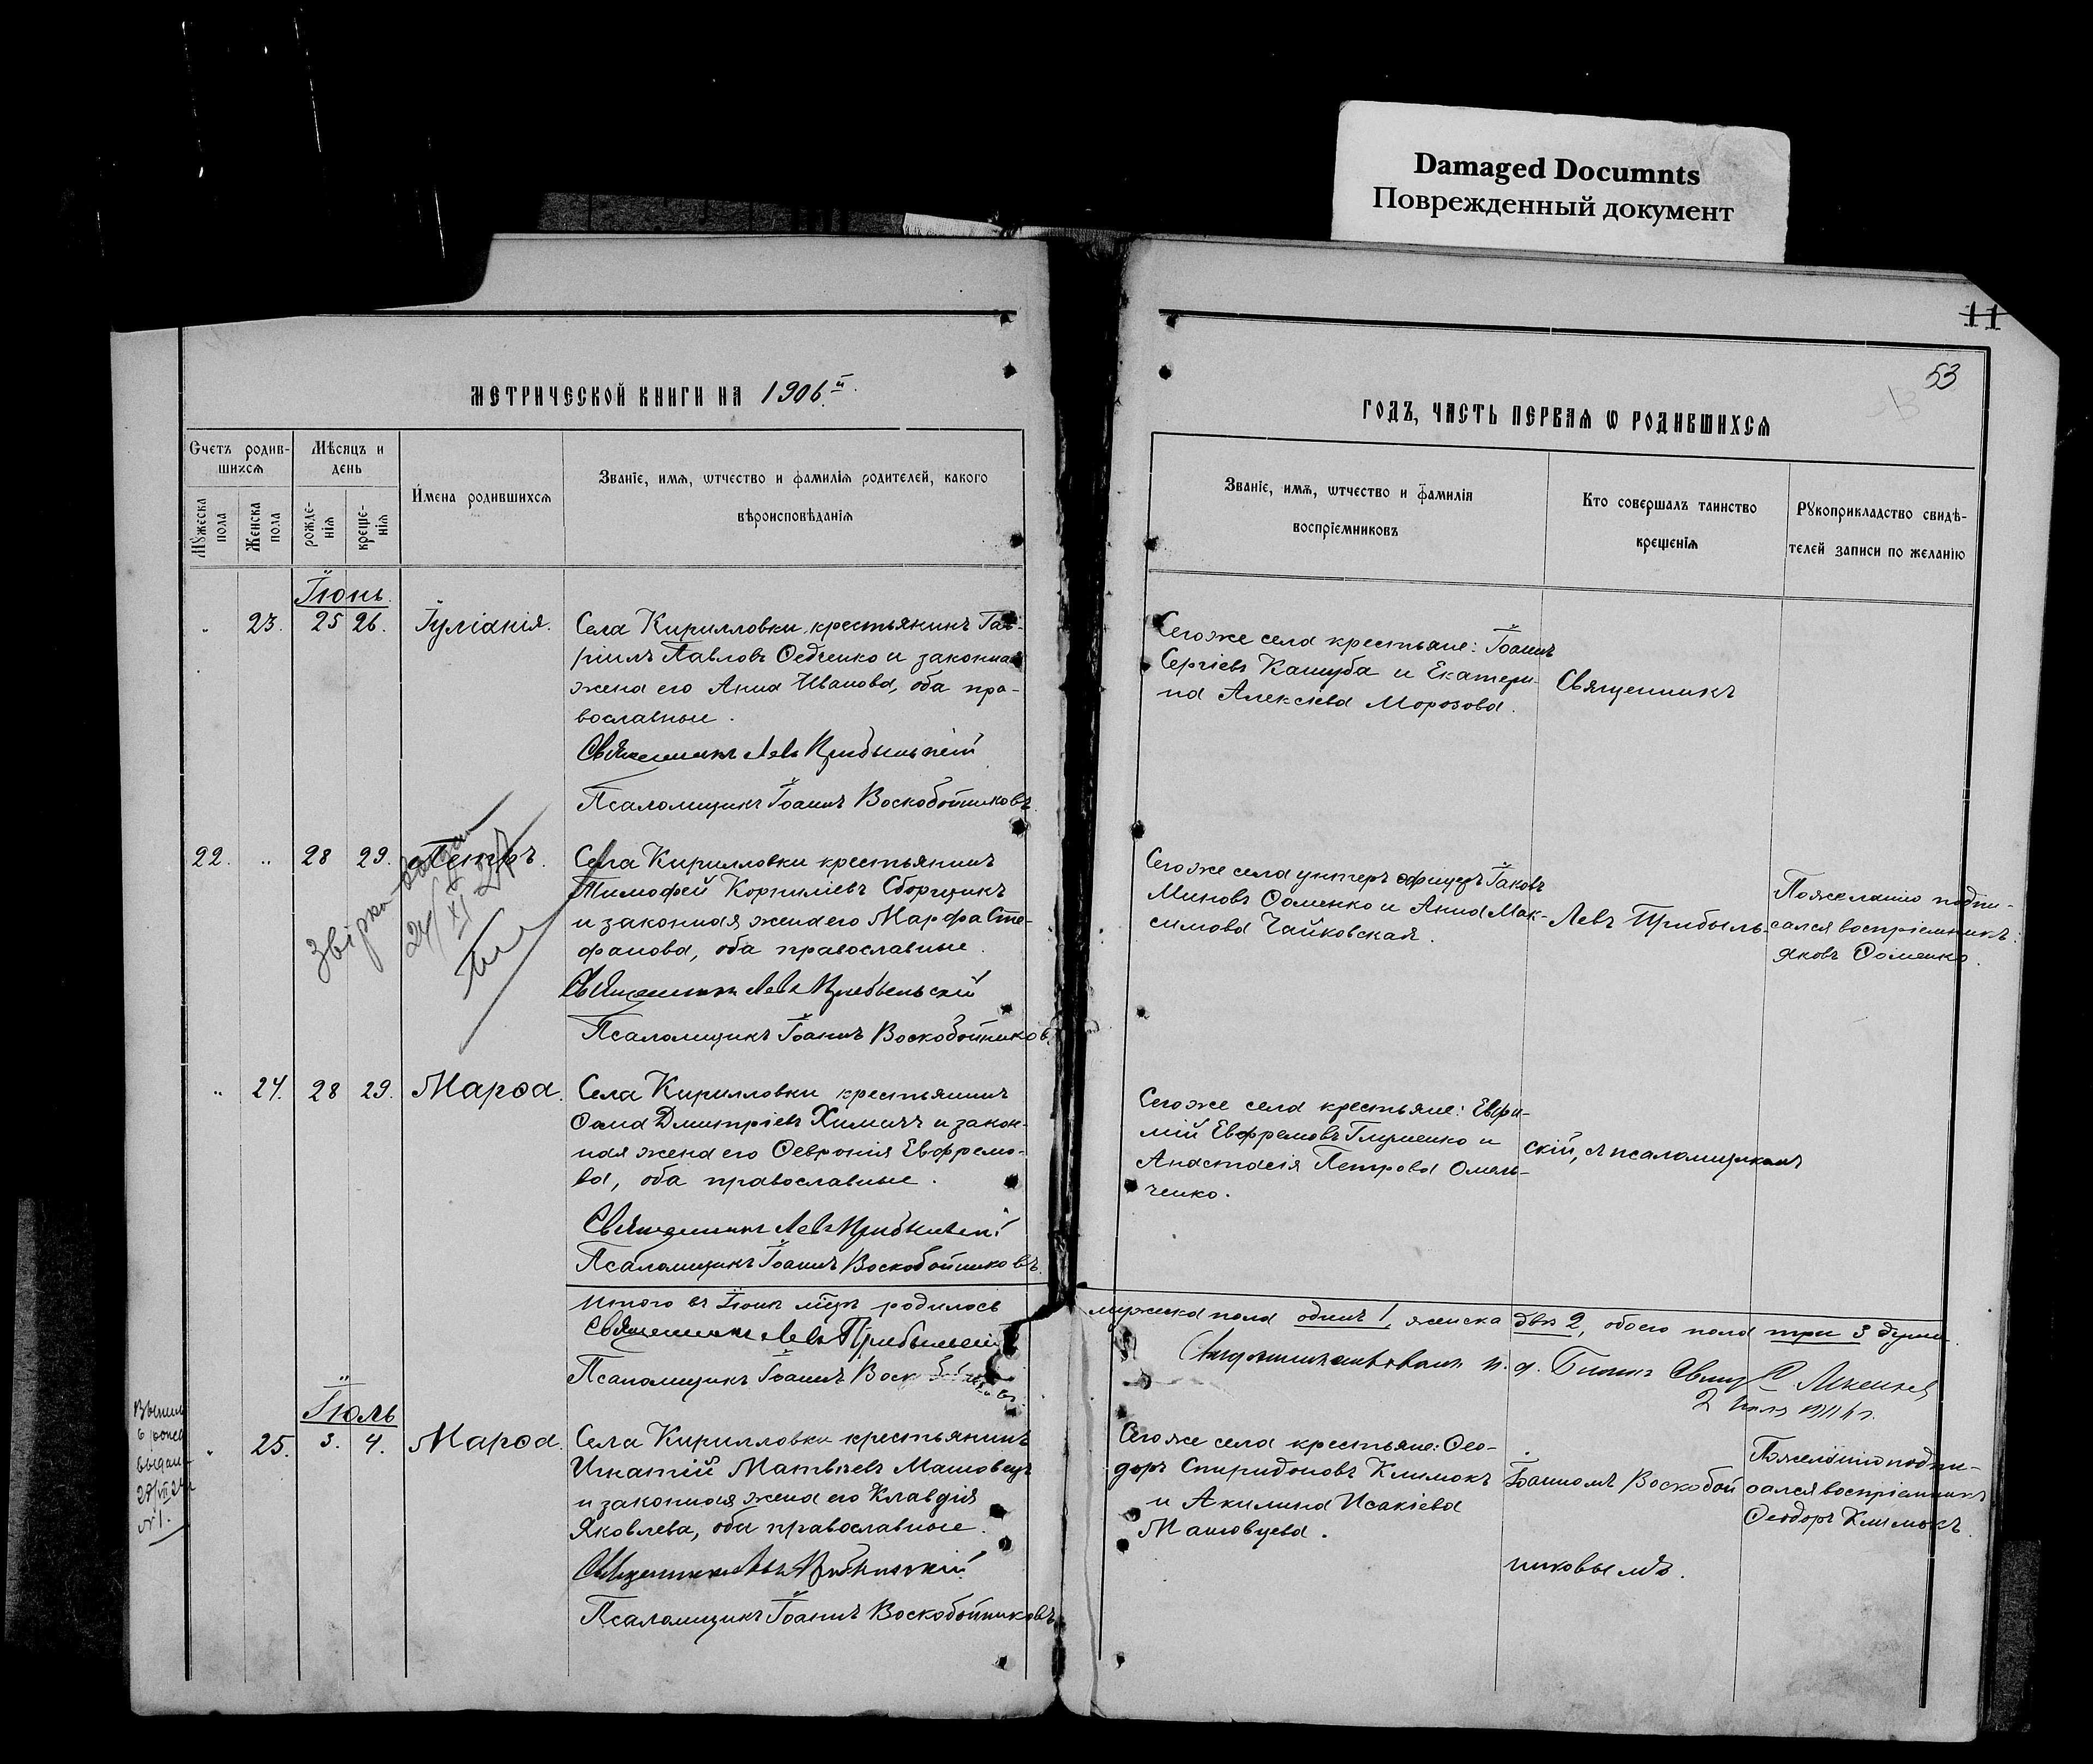 Damaged Documnts
Поврежденный документ
11
53
МЕТРИЧЕСКОЙ КНИГИ НА 1906й
ГОДЪ, ЧАСТЬ ПЕРВАЯ Ѡ РОДИВШИХСЯ
Счетъ родив-
шихся
Мужеска пола
Женска пола
Мѣсяцъ и
день
рожде-
нія
креще-
нія
Имена родившихся
Званіе, имя, ѡтчество и фамилія родителей, какого
вѣроисповѣданія
Званіе, имя, ѡтчество и фамилія
воспріемниковъ
Кто совершалъ таинство
крещенія
Рукоприкладство свидѣ-
телей записи по желанію
Іюнь.
23. 25 26. Іуліанія.
Села Кирилловки крестьянинъ Гав-
ріилъ Павловъ Ѳедченко и законная
жена его Анна Иванова, оба пра-
вославные.
Священникъ Левъ Прибыльскій
Псаломщикъ Іоаннъ Воскобойниковъ.
Сего же села крестьяне: Іоаннъ
Сергіевъ Кашуба и Екатери-
на Алексѣева Морозова.
Священникъ
22. „ 28 29. Петръ.
Села Кирилловки крестьянинъ
Тимофей Корниліевъ Сборщикъ
и законная жена его Марфа Сте-
фанова, оба православные.
Священникъ Левъ Прибыльскій
Псаломщикъ Іоаннъ Воскобойниковъ.
Сего же села унтеръ офицеръ Іаковъ
Миновъ Ѳоменко и Анна Мак-
симова Чайковская.
Левъ Прибыль-
По желанію подпи-
сался воспріемникъ:
Яковъ Ѳоменко.
„ 24. 28 29. Марѳа.
Села Кирилловки крестьянинъ
Ѳома Дмитріевъ Химичъ и закон-
ная жена его Ѳевронія Евфремо-
ва, оба православные.
Священникъ Левъ Прибыльскій
Псаломщикъ Іоаннъ Воскобойниковъ.
Сего же села крестьяне: Евфи-
мій Евфремовъ Глущенко и
Анастасія Петрова Омель-
ченко.
скій, съ псаломщикомъ
Итого въ Іюнѣ м-цѣ родилось
мужеска пола одинъ 1, женска двѣ 2, обоего пола три 3 души.
Священникъ Левъ Прибыльскій
Псаломщикъ Іоаннъ Воскобойниковъ.
Іюль
25. 3. 4. Марѳа.
Села Кирилловки крестьянинъ
Игнатій Матвѣевъ Машовецъ
и законная жена его Клавдія
Яковлева, оба православные.
Священникъ Левъ Прибыльскій
Псаломщикъ Іоаннъ Воскобойниковъ
Сего же села крестьяне: Ѳео-
доръ Спиридоновъ Климокъ
и Акилина Исакіева
Машовцева.
Іоанномъ Воскобой
никовымъ.
По желанію подпи-
сался воспріемникъ
Ѳеодоръ Климокъ.